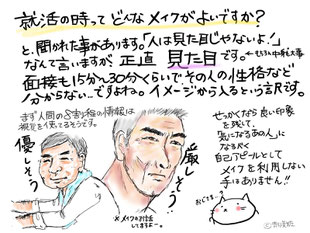 就活の時ってどんなメイクがよいですか?
と、聞かれた事があります。「人は見た目じゃないよ!」
なんて言いますが、正直 見た目です。←もちろん中身も大事
面接も15分〜30分くらいでその人の性格など
分からない…ですよね。イメージから入るという訳です。
まず人間の8割程の情報は
視覚を使ってるそうです。
優しそう
厳しそう
※メイクのお付き合い
せっかくなら良い印象
を残して、
「気になるあの人」に
なるべく
自己アピールとして
メイクを利用しない
手はありません!!
おじぎ